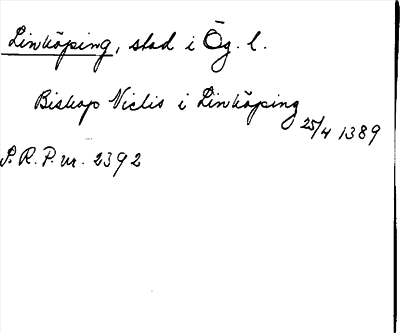 Linköping, stad i Ög. l.
Biskop Niclis i Linköping 25/4 1389
S.R.P. nr. 2392